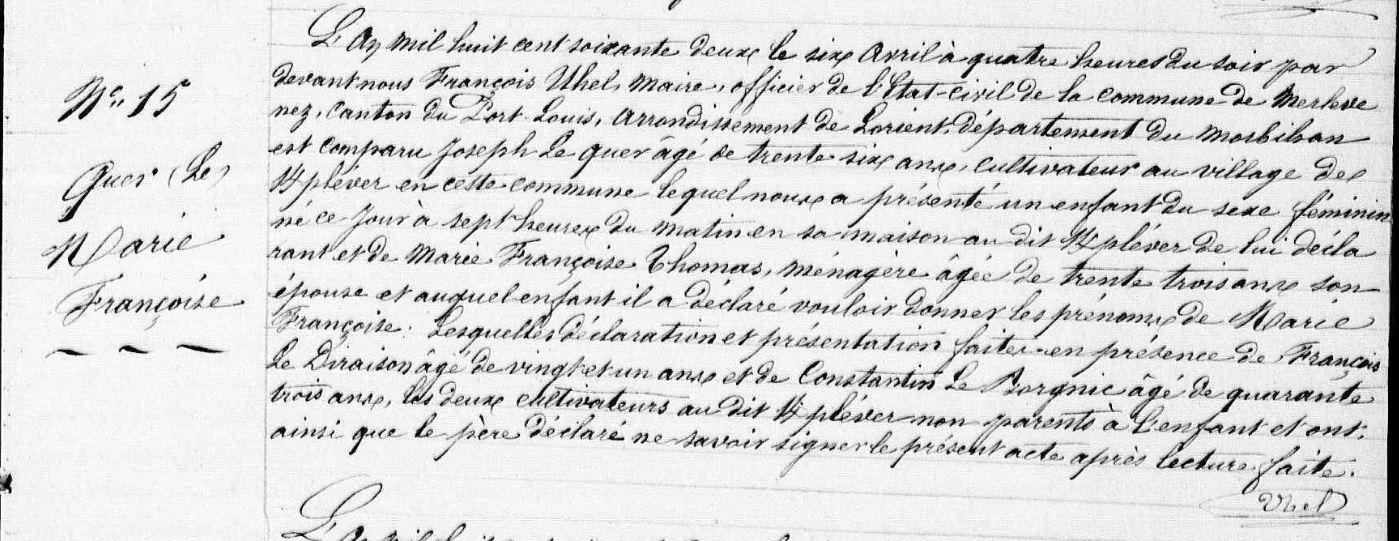 N° 15
Quer (Le)
Marie
Françoise
L'an mil huit cent soixante deux le six avril à quatre heures du soir par
devant nous François Uhel, maire, officier de l'Etat-civil de la commune de Merleve
nez, canton du Port-Louis, arrondissement de Lorient, département du Morbihan
est comparu Joseph Le Quer âgé de trente six ans, cultivateur au village de
pléver en cette commune lequel nous a présenté un enfant du sexe féminin
né ce jour à sept heures du matin en sa maison au dit pléver de lui décla
rant et de Marie Françoise Thomas, ménagère âgée de trente trois ans son
épouse et auquel enfant il a déclaré vouloir donner les prénoms de Marie
Françoise. Lesquelles déclaration et présentation faites en présence de François
Le Diraison âgé de vingt et un ans et de Constantin Le Borgnic âgé de quarante
trois ans, les deux cultivateurs au dit pléver non parents à l'enfant et ont
ainsi que le père déclaré ne savoir signer le présent acte après lecture faite.
Uhel